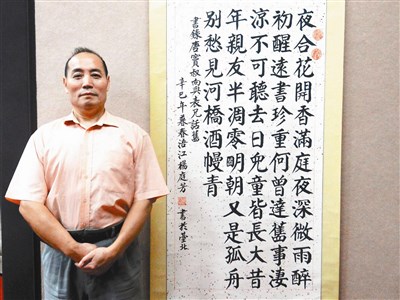 夜合花開香滿庭夜深微雨醉
初醒遠書珍重何曾達舊事淒
涼不可聽去日兒童皆長大昔
年親友半凋零明朝又是孤舟
別愁見河橋酒幔青
書錄唐竇叔向與表兄話舊
辛巳年暮春浯江楊庭芳 書於臺北